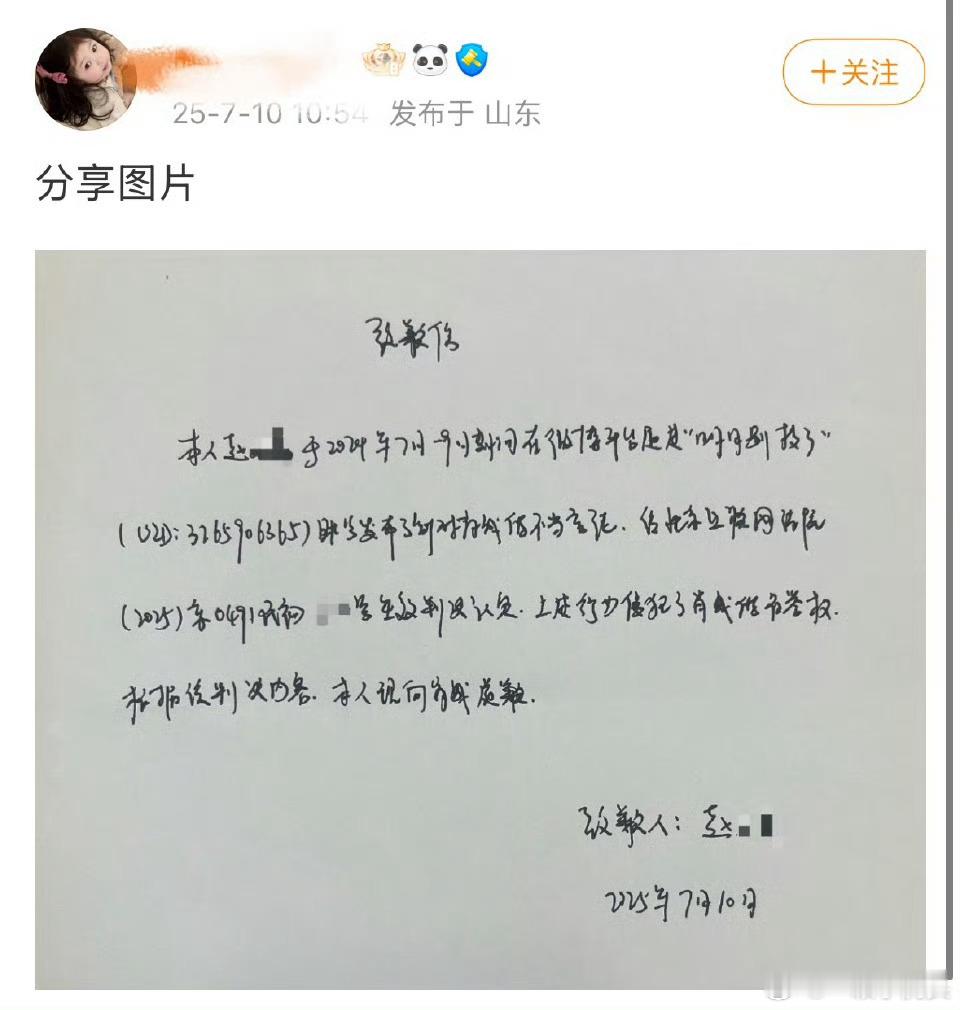 25-7-10 10:54 发布于 山东
+关注
分享图片
致歉信
本人赵 于2024年7月 期间在微博平台通过"
(UID:3265906365)账号发布了针对肖战的不当言论,经北京互联网法院
(2025)京0491民初 号生效判决认定,上述行为侵犯了肖战的名誉权.
根据该判决内容,本人现向肖战致歉.
致歉人:赵
2025年7月10日